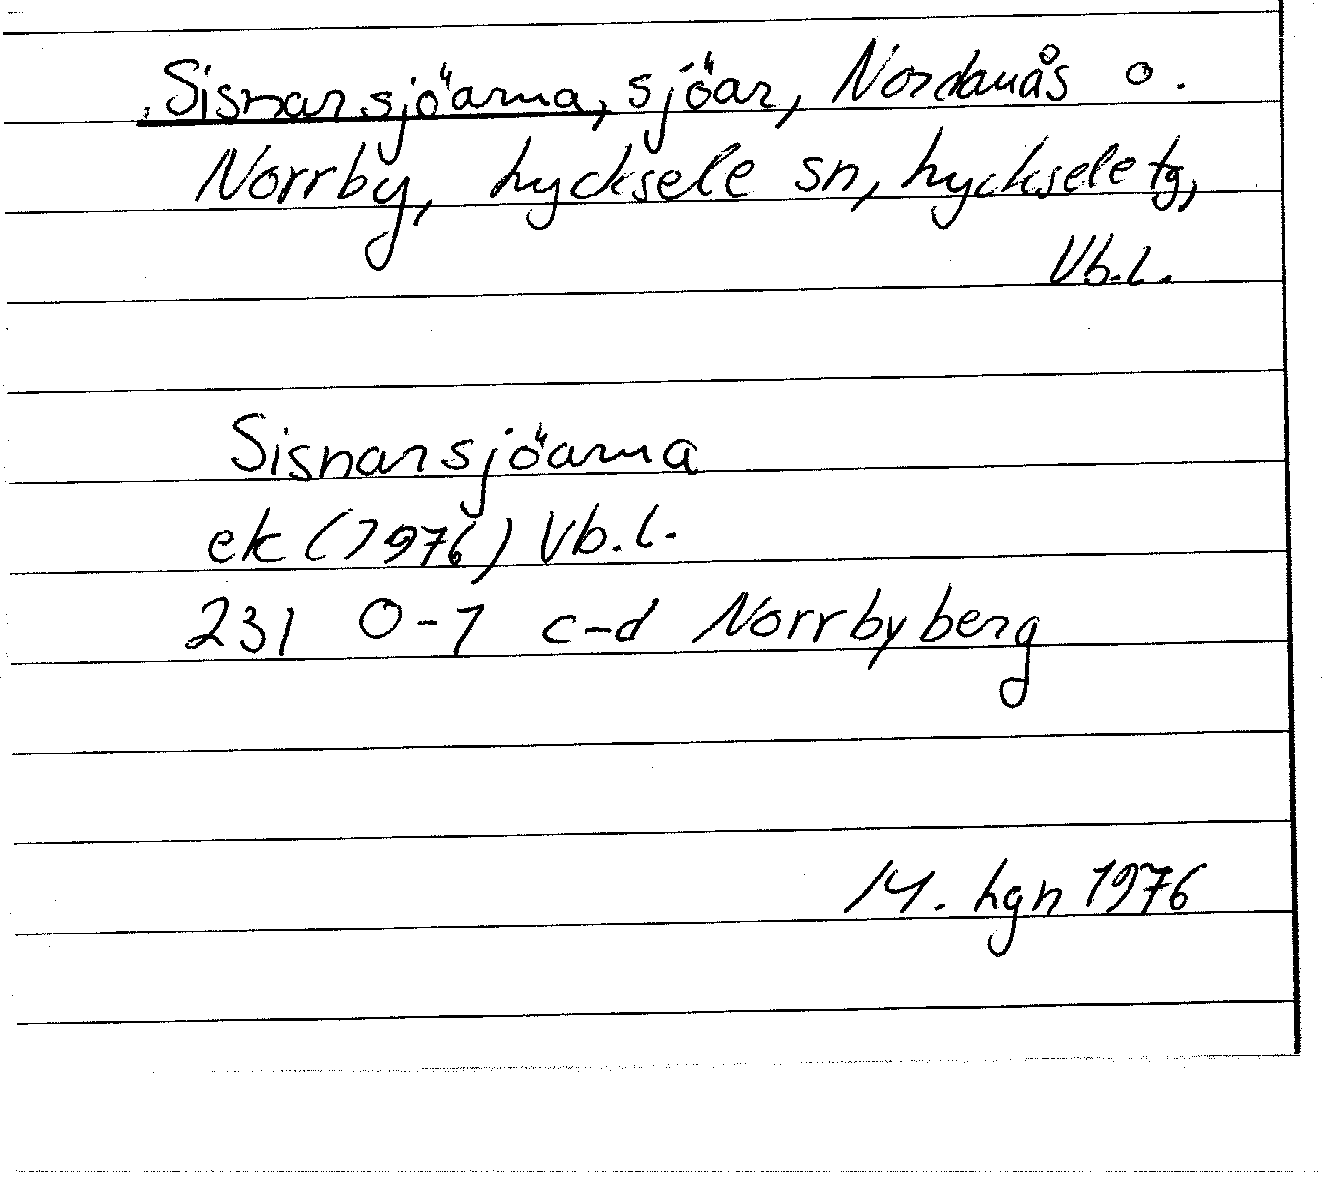 Sisnarsjöarna, sjöar, Nordanås o.
Norrby, Lycksele sn, Lycksele tg,
Vb.l.
Sisnarsjöarna
ek (1976) Vb.l.
231 0-1 c-d Norrbyberg
14. hgn 1976